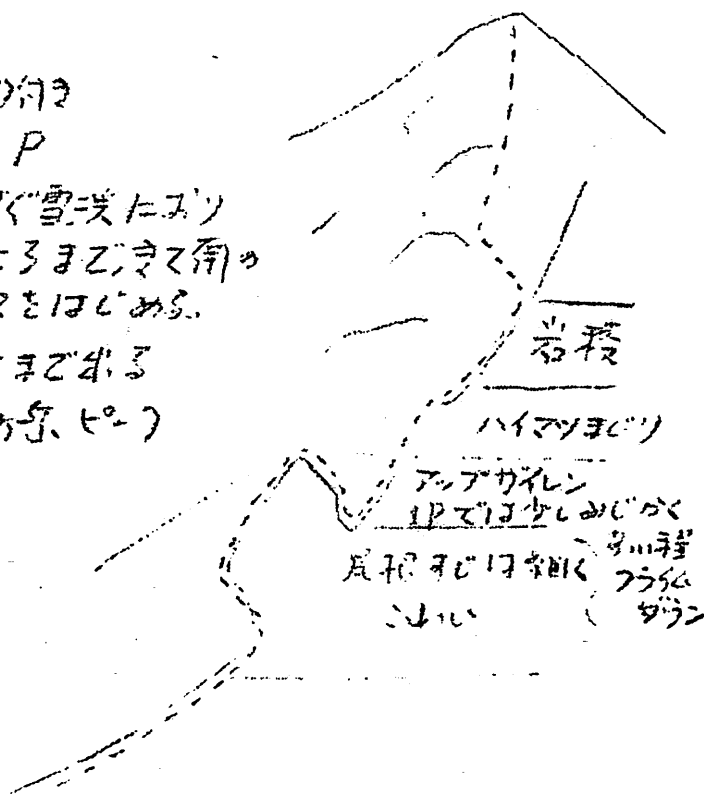 り付き
P
ぐ雪渓におり
ころまで、きて雨の
をはじめる。
まで出る
ピーク
岩稜
ハイマツまじり
アップザイレン
1Pでは少しみじかく
尾根すじは細く
こわい
クライム
ダウン